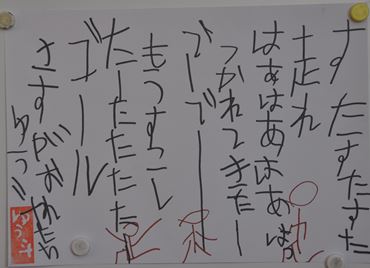 すたすたすた
走れ
はあはあはあはあ
つかれてきたー
でーでーーー
もうすこし
たーたたたた
ゴール
さすがおれたち
ゆうご